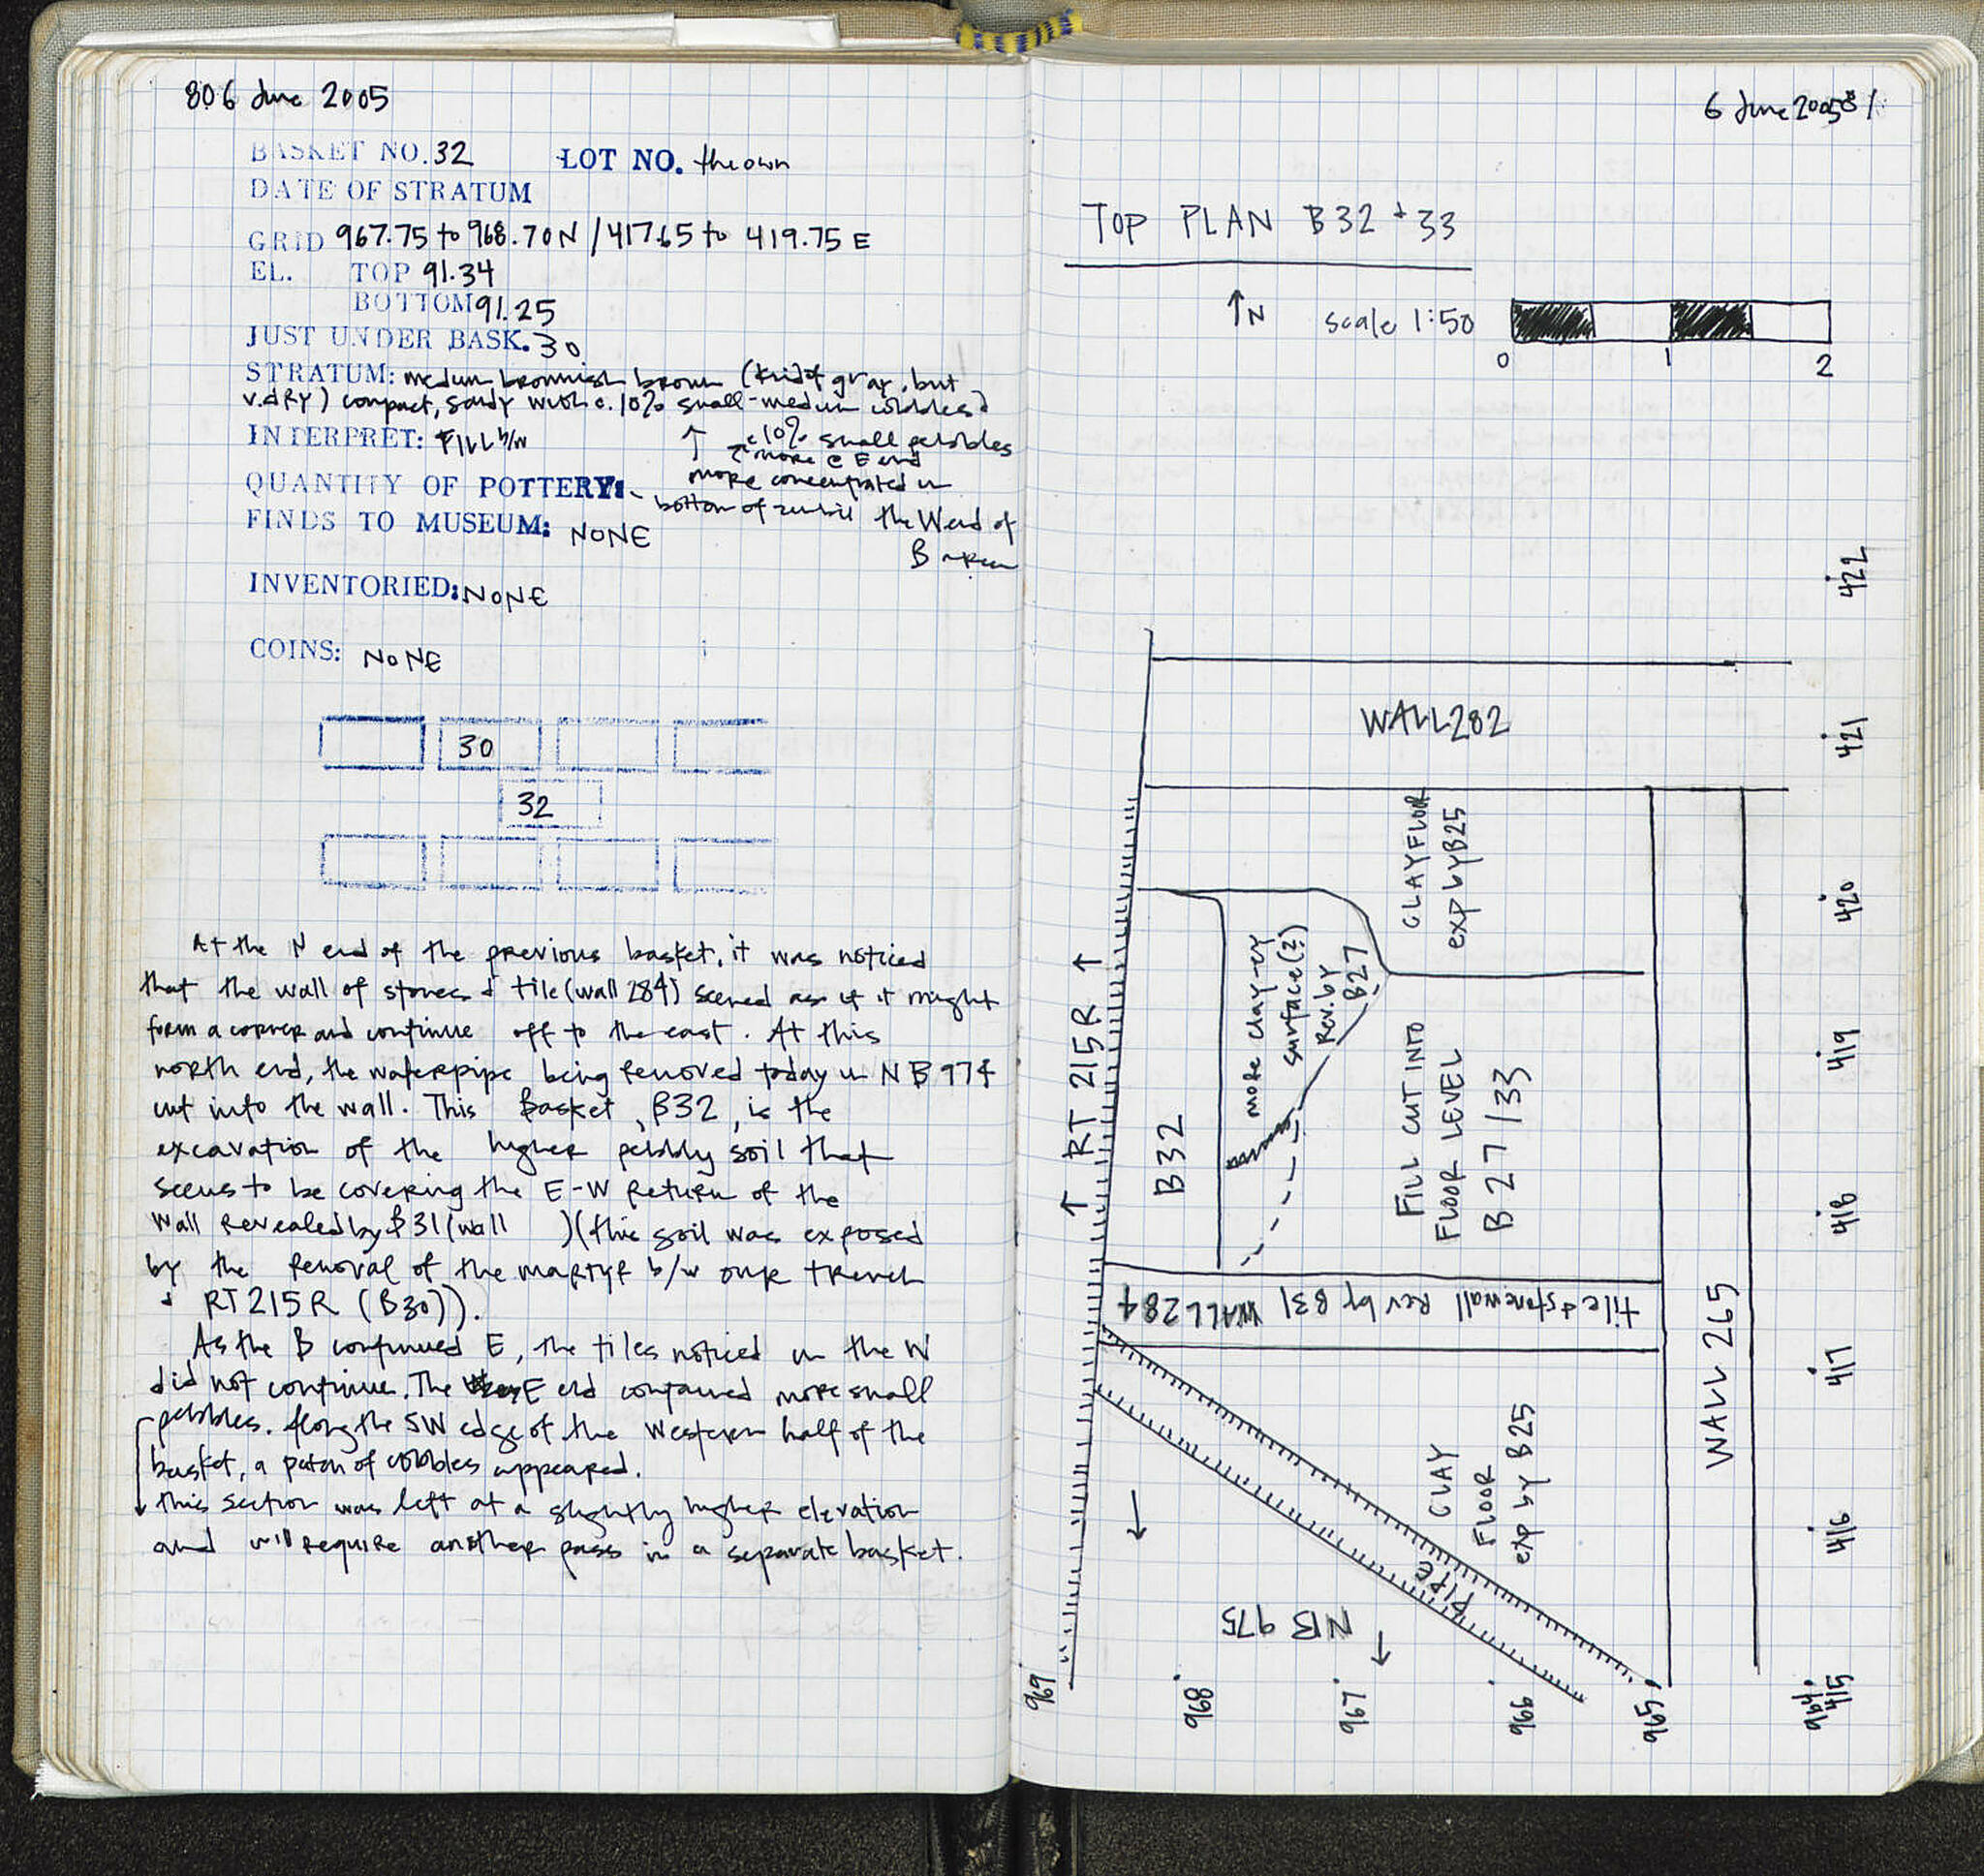 80 6 June 2005
BASKET NO. 32 LOT NO. thrown
DATE OF STRATUM
GRID 967.75 to 968.70 N / 417.65 to 419.75 E
EL. TOP 91.34
BOTTOM 91.25
JUST UNDER BASK. 30
STRATUM: medium brownish brown (kind of gray, but
v. dry) compact, sandy with c. 10% small-medium cobbles &
INTERPRET: FILL b/w
<10% small pebbles
more @ E end
more concentrated in
QUANTITY OF POTTERY:
bottom of the W end of
B area
FINDS TO MUSEUM: NONE
INVENTORIED: NONE
COINS: NONE
30
32
At the N end of the previous basket, it was noticed
that the wall of stones & tile (wall 284) seemed as if it might
form a corner and continue off to the east. At this
north end, the waterpipe being removed today in NB 974
cut into the wall. This Basket, B32, is the
excavation of the higher pebbly soil that
seems to be covering the E-W Return of the
wall revealed by B31 (wall ) (this soil was exposed
by the removal of the martyr b/w our trench
& RT 215 R (B30)).
As the B continued E, the tiles noticed in the W
did not continue. The E end contained more small
pebbles. Along the SW edge of the western half of the
basket, a patch of cobbles appeared.
this section was left at a slightly higher elevation
and will require another pass in a separate basket.
6 June 2005 81
TOP PLAN B32 + 33
↑N scale 1:50
0 1 2
422
WALL 282
421
CLAY FLOOR
exp by B25
420
more clay-ey
surface (?)
Rev. by
B27
↑ RT 215 R ↑
419
B32
FILL CUT INTO
FLOOR LEVEL
B 27 / 33
418
tile & stone wall Rev by B31 WALL 284
WALL 265
417
CLAY
FLOOR
exp by B25
416
PIPE
NB 975
969 968 967 966 965 964
415